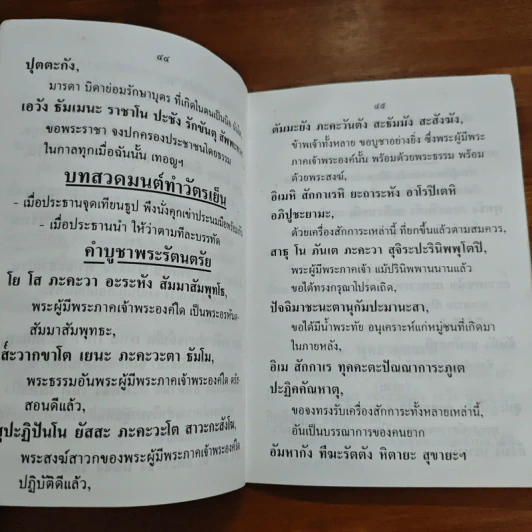 ๔๔
ปุตตะกัง,
มารดา บิดาย่อมรักษาบุตร ที่เกิดในตนเป็นนิจ ฉันใด
เอวัง ธัมเมนะ ราชาโน ปะชัง รักขันตุ สัพพะทา
ขอพระราชา จงปกครองประชาชนโดยธรรม
ในกาลทุกเมื่อฉันนั้น เทอญฯ
บทสวดมนต์ทำวัตรเย็น
- เมื่อประธานจุดเทียนธูป พึงนั่งคุกเข่าประนมมือพร้อมกัน
- เมื่อประธานนำ ให้ว่าตามทีละบรรทัด
คำบูชาพระรัตนตรัย
โย โส ภะคะวา อะระหัง สัมมาสัมพุทโธ,
พระผู้มีพระภาคเจ้าพระองค์ใด เป็นพระอรหันต
สัมมาสัมพุทธะ,
ส๎วากขาโต เยนะ ภะคะวะตา ธัมโม,
พระธรรมอันพระผู้มีพระภาคเจ้าพระองค์ใด ตรัส
สอนดีแล้ว,
สุปะฏิปันโน ยัสสะ ภะคะวะโต สาวะกะสังโฆ,
พระสงฆ์สาวกของพระผู้มีพระภาคเจ้าพระองค์ใด
ปฏิบัติดีแล้ว,
๔๕
ตัมมะยัง ภะคะวันตัง สะธัมมัง สะสังฆัง,
ข้าพเจ้าทั้งหลาย ขอบูชาอย่างยิ่ง ซึ่งพระผู้มีพระ
ภาคเจ้าพระองค์นั้น พร้อมด้วยพระธรรม พร้อม
ด้วยพระสงฆ์,
อิเมหิ สักกาเรหิ ยะถาระหัง อาโรปิเตหิ
อภิปูชะยามะ,
ด้วยเครื่องสักการะเหล่านี้ ที่ยกขึ้นแล้วตามสมควร,
สาธุ โน ภันเต ภะคะวา สุจิระปะรินิพพุโตปิ,
พระผู้มีพระภาคเจ้า แม้ปรินิพพานนานแล้ว
ขอได้ทรงกรุณาโปรดเถิด,
ปัจฉิมาชะนะตานุกัมปะมานะสา,
ขอได้มีน้ำพระทัย อนุเคราะห์แก่หมู่ชนที่เกิดมา
ในภายหลัง,
อิเม สักกาเร ทุคคะตะปัณณาการะภูเต
ปะฏิคคัณหาตุ,
ขอจงทรงรับเครื่องสักการะทั้งหลายเหล่านี้,
อันเป็นบรรณาการของคนยาก
อัมหากัง ทีฆะรัตตัง หิตายะ สุขายะฯ